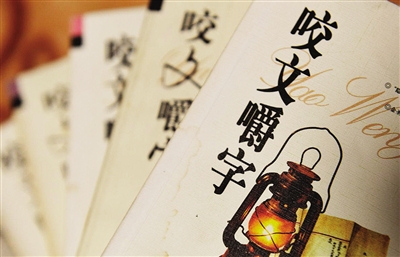 咬文嚼字
Yao Wen
咬文嚼字
咬文嚼
咬文